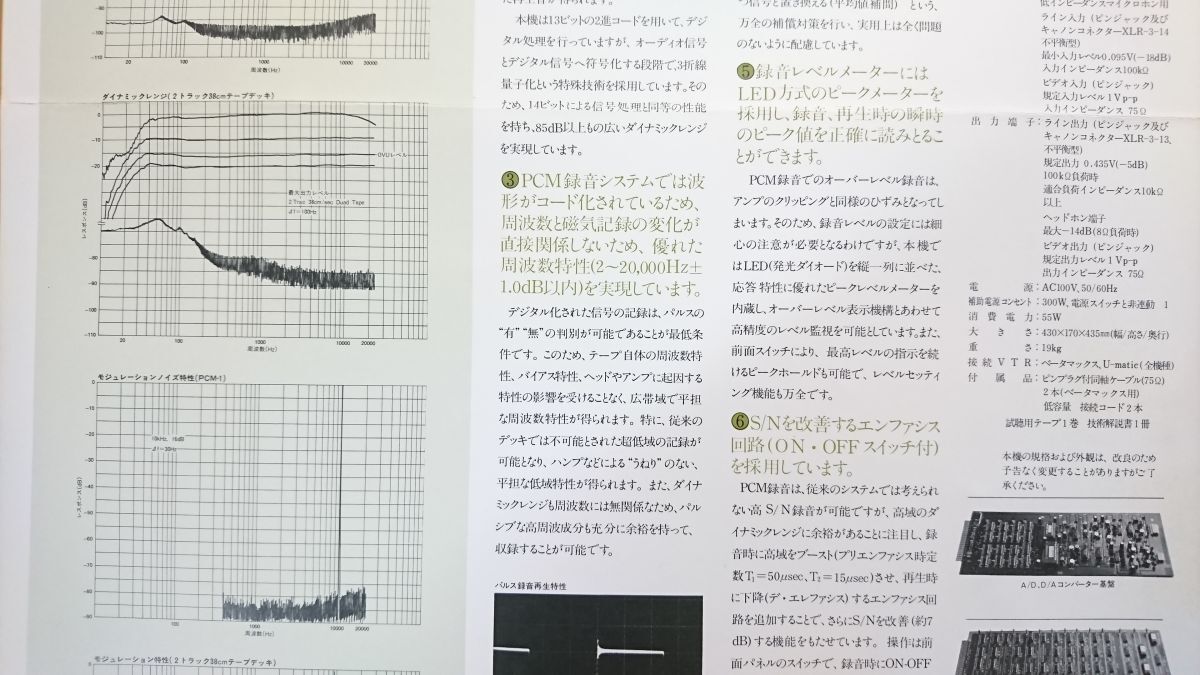 -80
-100
-110
20
100
1000
10000 20000
周波数(Hz)
ダイナミックレンジ(2トラック38cmテープデッキ)
レスポンス(dB)
0
-20
OVUレベル
最大出力レベル
2 Trac 38cm/sec Quad Tape
⊿f=100Hz
-80
-100
-110
20
100
1000
10000
20000
周波数(Hz)
モジュレーションノイズ特性(PCM-1)
レスポンス(dB)
0
-10
-20
-30
-40
-50
-60
-70
-80
-90
10kHz,
⊿f=30Hz
100
1000
10000
20000
周波数(Hz)
モジュレーション特性(2トラック38cmテープデッキ)
本機は13ビットの2進コードを用いて、デジ
タル処理を行っていますが、オーディオ信号
とデジタル信号へ符号化する段階で、3折線
量子化という特殊技術を採用しています。そ
のため、14ビットによる信号処理と同等の性能
を持ち、85dB以上もの広いダイナミックレンジ
を実現しています。
③PCM録音システムでは波
形がコード化されているため、
周波数と磁気記録の変化が
直接関係しないため、優れた
周波数特性(2〜20,000Hz±
1.0dB以内)を実現しています。
デジタル化された信号の記録は、パルスの
“有”“無”の判別が可能であることが最低条
件です。このため、テープ自体の周波数特
性、バイアス特性、ヘッドやアンプに起因する
特性の影響を受けることなく、広帯域で平担
な周波数特性が得られます。特に、従来の
デッキでは不可能とされた超低域の記録が
可能となり、ハンプなどによる“うねり”のない、
平担な低域特性が得られます。また、ダイナ
ミックレンジも周波数には無関係なため、パル
シブな高周波成分も充分に余裕を持って、
収録することが可能です。
パルス録音再生特性
つ信号と置き換える(平均値補間)という、
万全の補償対策を行い、実用上は全く問題
のないように配慮しています。
⑤録音レベルメーターには
LED方式のピークメーターを
採用し、録音、再生時の瞬時
のピーク値を正確に読みとるこ
とができます。
PCM録音でのオーバーレベル録音は、
アンプのクリッピングと同様のひずみとなってし
まいます。そのため、録音レベルの設定には細
心の注意が必要となるわけですが、本機で
はLED(発光ダイオード)を縦一列に並べた、
応答特性に優れたピークレベルメーターを
内蔵し、オーバーレベル表示機構とあわせて
高精度のレベル監視を可能としています。また、
前面スイッチにより、最高レベルの指示を続
けるピークホールドも可能で、レベルセッティ
ング機能も万全です。
⑥S/Nを改善するエンファシス
回路(ON・OFFスイッチ付)
を採用しています。
PCM録音は、従来のシステムでは考えられ
ない高S/N録音が可能ですが、高域のダ
イナミックレンジに余裕があることに注目し、録
音時に高域をブースト(プリエンファシス時定
数T₁=50μsec、T₂=15μsec)させ、再生時
に下降(デ・エレファシス)するエンファシス回
路を追加することで、さらにS/Nを改善(約7
dB)する機能をもたせています。操作は前
面パネルのスイッチで、録音時にON-OFF
低インピーダンスマイクロホン用
ライン入力(ピンジャック及び
キャノンコネクターXLR-3-14
不平衡型)
最小入力レベル0.095V(−18dB)
入力インピーダンス100kΩ
ビデオ入力(ピンジャック)
規定入力レベル1Vp-p
入力インピーダンス 75Ω
出力端子：ライン出力(ピンジャック及び
キャノンコネクターXLR-3-13、
不平衡型)
規定出力 0.435V(−5dB)
100kΩ負荷時
適合負荷インピーダンス10kΩ
以上
ヘッドホン端子
最大−14dB(8Ω負荷時)
ビデオ出力(ピンジャック)
規定出力レベル1Vp-p
出力インピーダンス 75Ω
電源：AC100V、50/60Hz
補助電源コンセント：300W、電源スイッチと非連動 1
消費電力：55W
大きさ：430×170×435mm(幅/高さ/奥行)
重さ：19kg
接続VTR：ベータマックス、U-matic(全機種)
付属品：ピンプラグ付同軸ケーブル(75Ω)
2本(ベータマックス用)
低容量 接続コード2本
試聴用テープ1巻 技術解説書1冊
本機の規格および外観は、改良のため
予告なく変更することがありますがご了
承ください。
A/D、D/Aコンバーター基盤